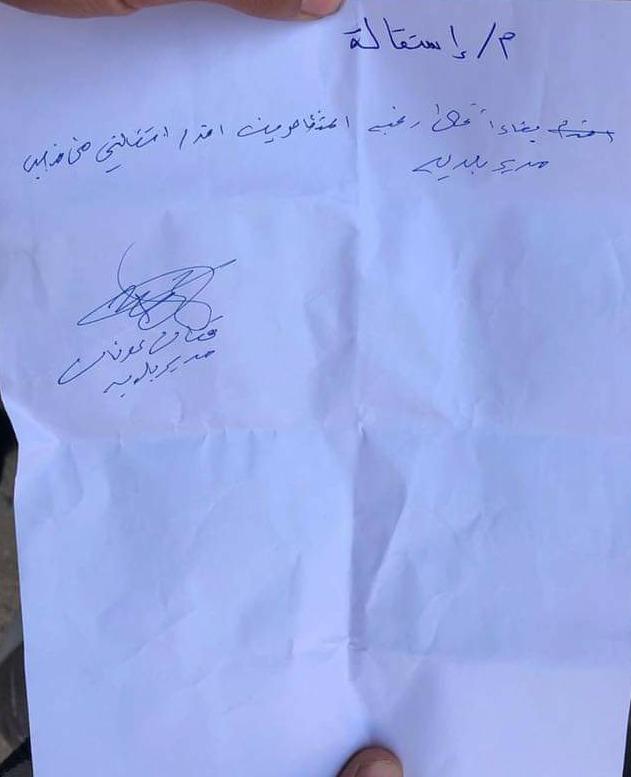 م/ إستقالة
بناءاً على رغبة المتظاهرين اقدم استقالتي من منصب
مدير بلدية
عدنان
مدير بلدية